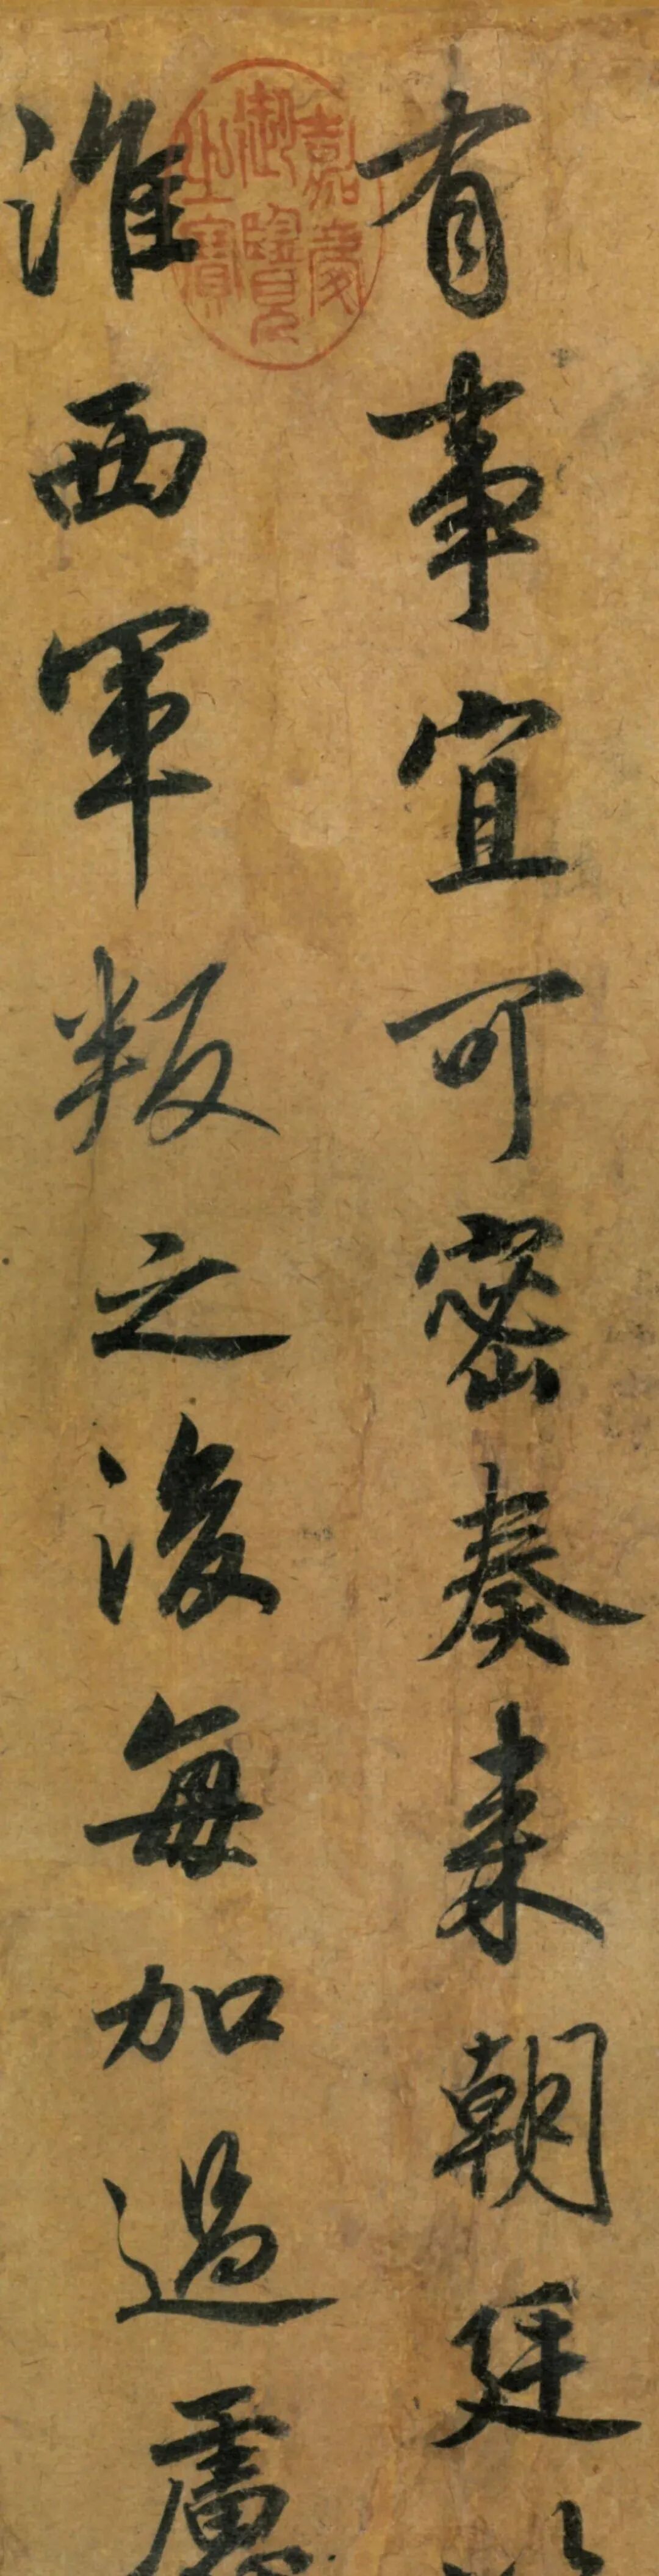 有事宜可密奏来朝廷以
淮西軍叛之後每加過慮
嘉慶御覽之寶